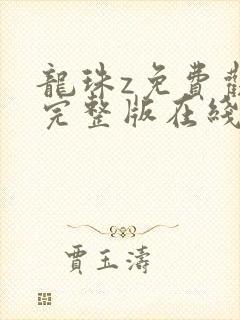 龍珠z免費觀
完整版在綫
賈玉濤